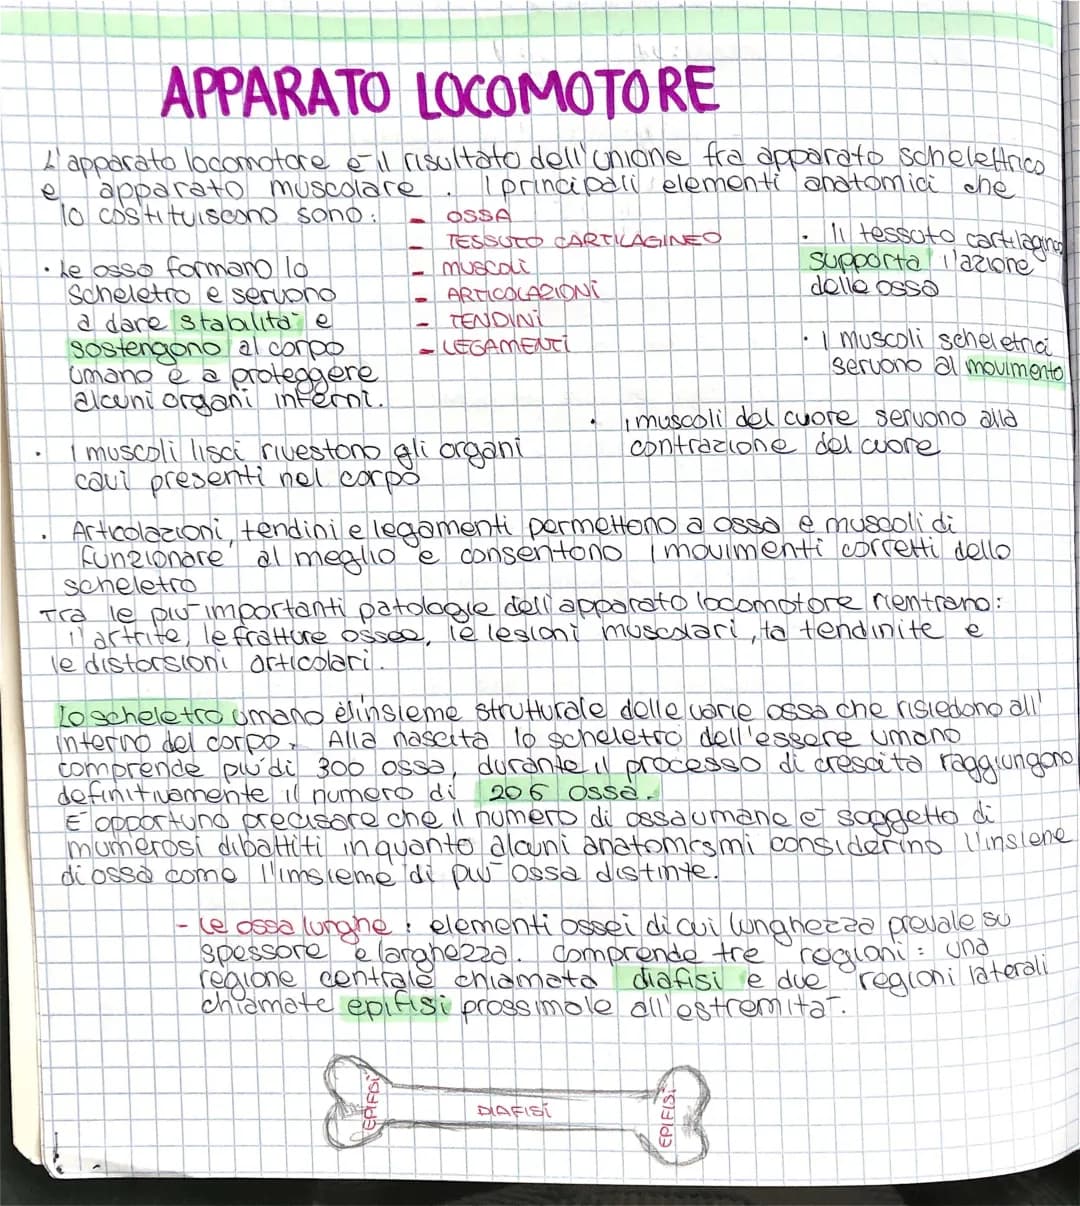 APPARATO LOCOMOTORE
L'apparato locomotore è il risultato dell'unione fra apparato scheletrico
e apparato muscolare. I principali elementi anatomici che
lo costituiscono sono:
- OSSA
- TESSUTO CARTILAGINEO
- MUSCOLI
- ARTICOLAZIONI
- TENDINI
- LEGAMENTI
· Le ossa formano lo
scheletro e servono
a dare stabilità e
sostengono al corpo
umano e a proteggere
alcuni organi interni.
· Il tessuto cartilagineo
supporta l'azione
delle ossa
· I muscoli scheletrici
servono al movimento
· i muscoli del cuore servono alla
contrazione del cuore
· I muscoli lisci rivestono gli organi
cavi presenti nel corpo
· Articolazioni, tendini e legamenti permettono a ossa e muscoli di
funzionare al meglio e consentono i movimenti corretti dello
scheletro
Tra le più importanti patologie dell'apparato locomotore rientrano:
l'artrite, le fratture ossee, le lesioni muscolari, la tendinite e
le distorsioni articolari.
Lo scheletro umano è l'insieme strutturale delle varie ossa che risiedono all'
interno del corpo. Alla nascita lo scheletro dell'essere umano
comprende più di 300 ossa, durante il processo di crescita raggiungono
definitivamente il numero di 206 ossa.
E' opportuno precisare che il numero di ossa umane è soggetto di
numerosi dibattiti in quanto alcuni anatomismi considerino l'insieme
di ossa come l'imsieme di più ossa distinte.
- Le ossa lunghe: elementi ossei di cui lunghezza prevale su
spessore e larghezza. Comprende tre regioni: una
regione centrale chiamata diafisi e due regioni laterali
chiamate epifisi prossimale all'estremità.
EPIFISI
DIAFISI
EPIFISI